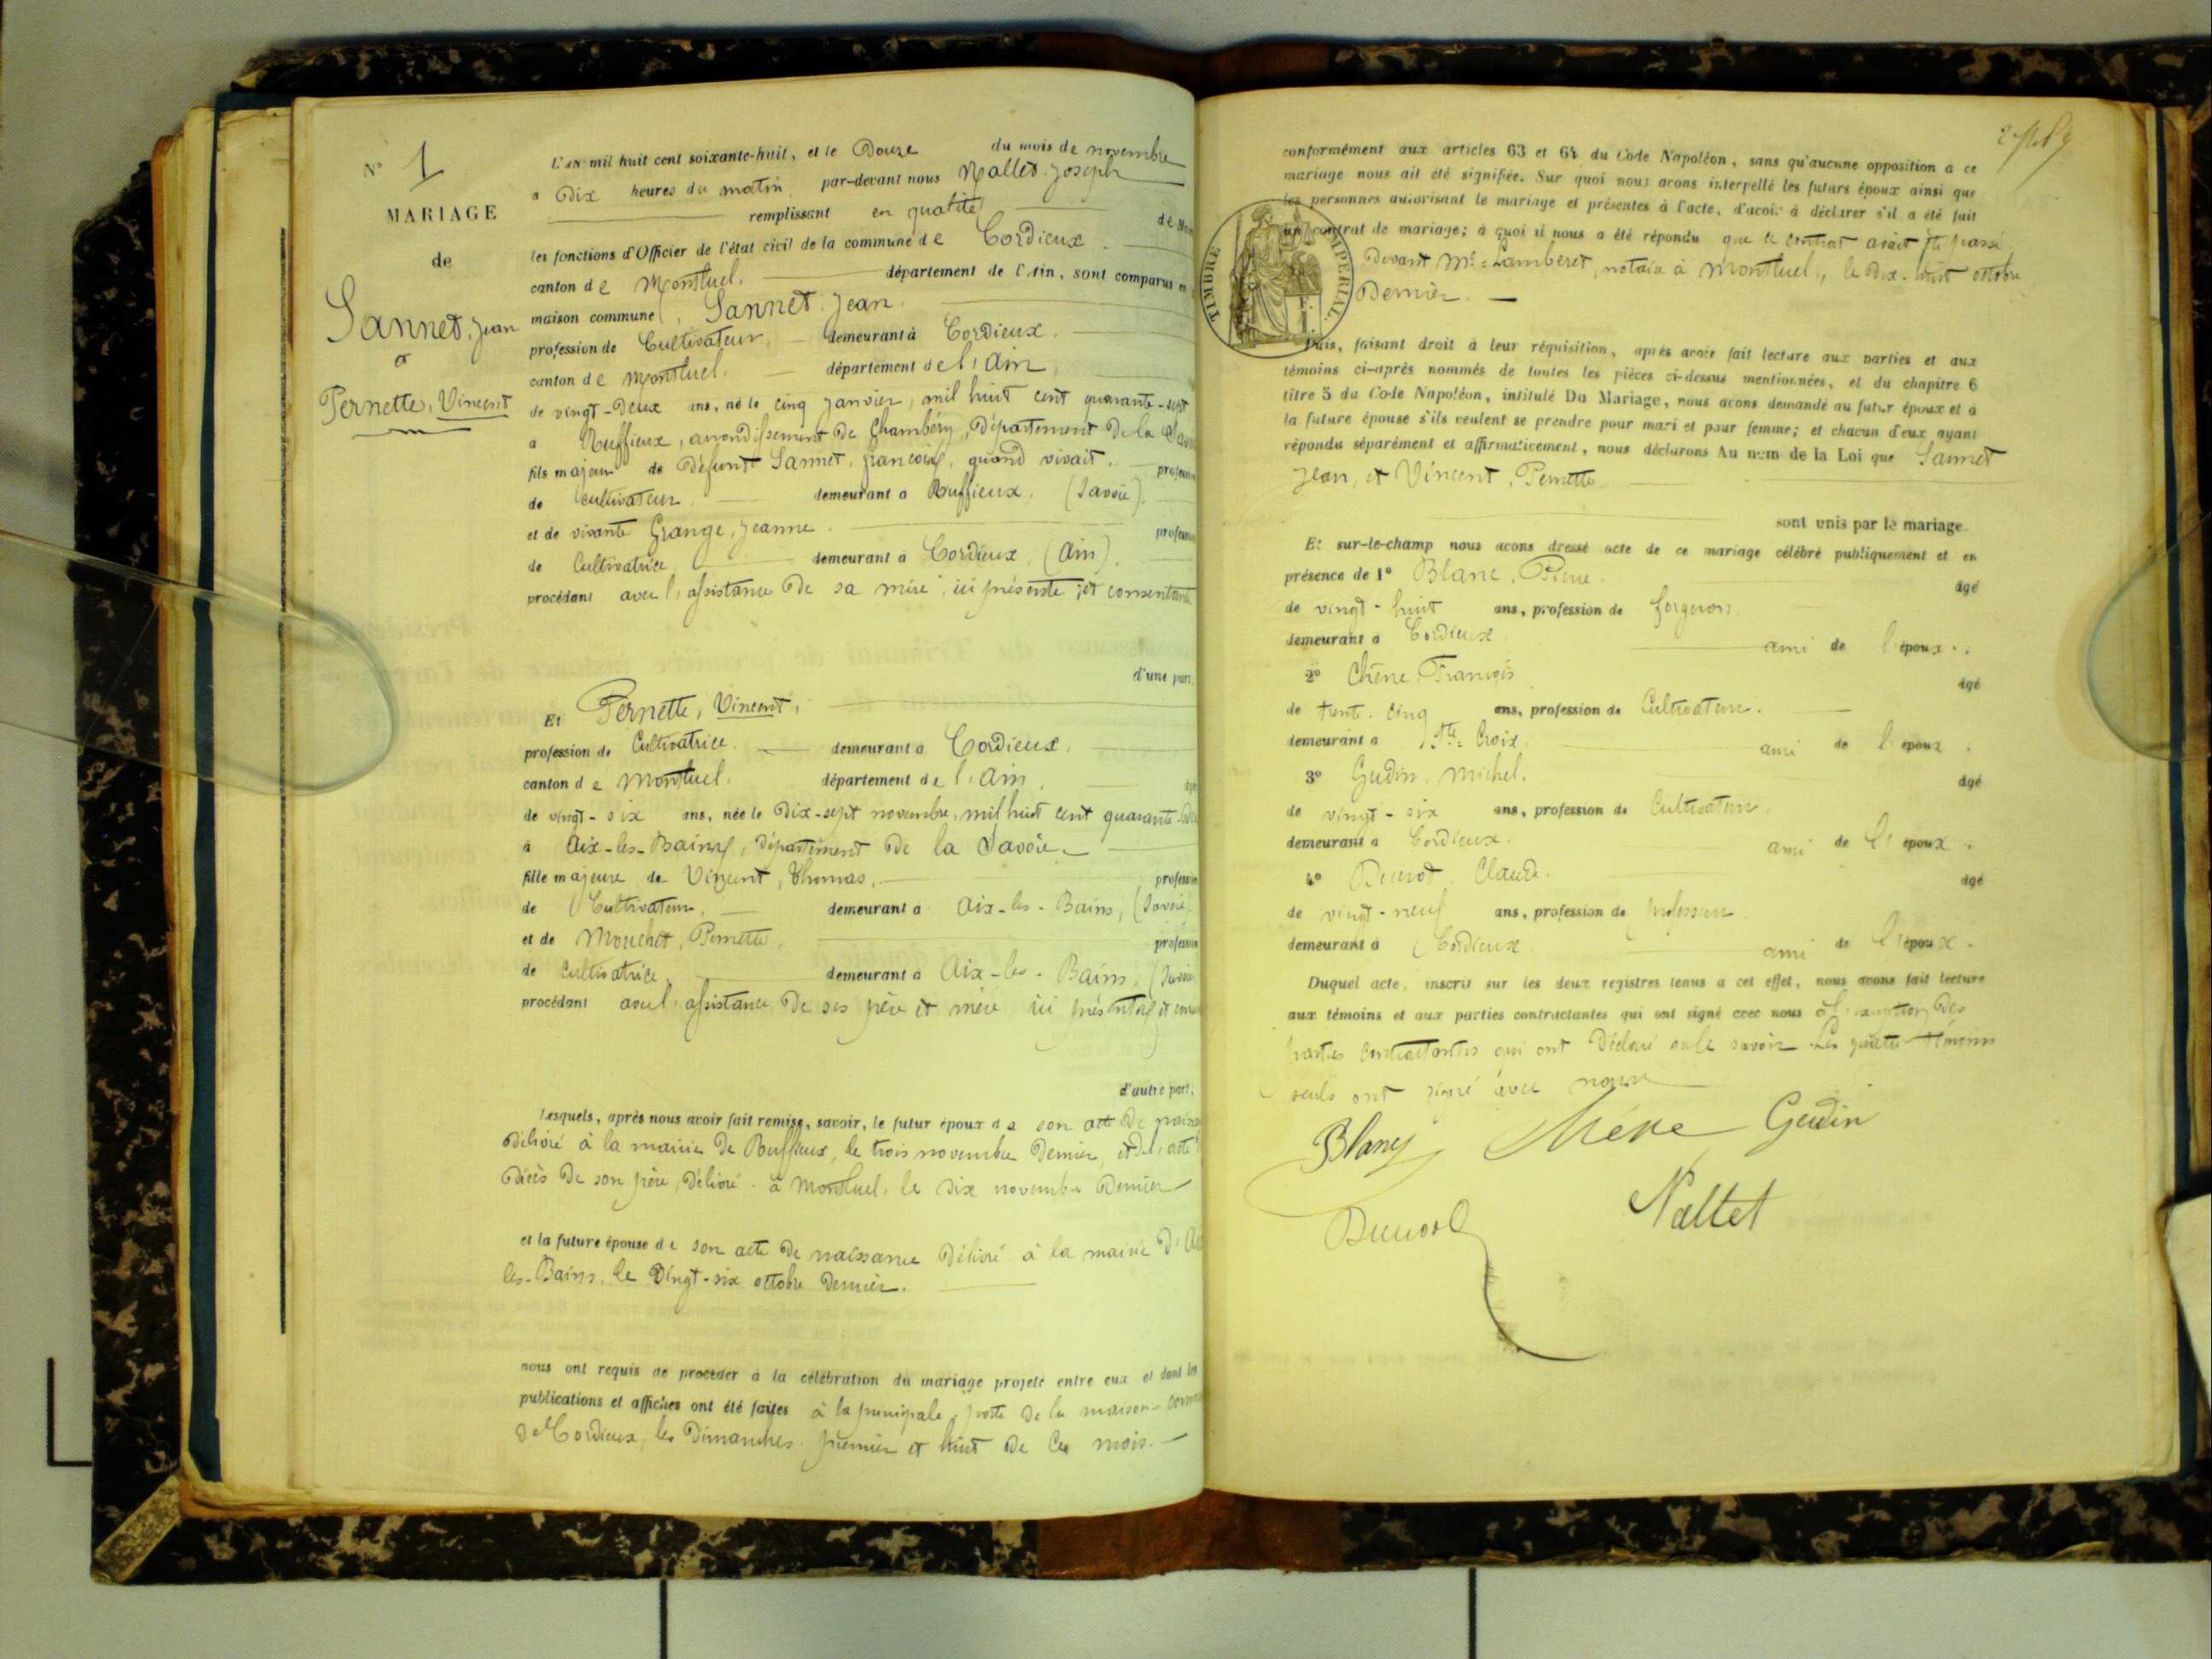 N° 1
MARIAGE
de
Sannet, Jean
et
Pernette, Vincent
L'AN mil huit cent soixante-huit, et le Douze du mois de novembre
à Dix heures du matin, par-devant nous Nallet Joseph
remplissant en qualité de
les fonctions d'Officier de l'état civil de la commune de Cordieux
canton de Montluel. département de l'Ain, sont comparus en
maison commune, Sannet Jean.
profession de Cultivateur, demeurant à Cordieux.
canton de Montluel. département de l'Ain,
de vingt-Deux ans, né le cinq Janvier, mil huit cent quarante-sept
à Ruffieux, arrondissement De Chambéry, Département De la
fils majeur de Défunt Sannet, françois, quand vivait.
de cultivateur. demeurant à Ruffieux. (Savoie).
et de vivante Grange, Jeanne
de Cultivatrice. demeurant à Cordieux, (Ain).
procédant avec l'assistance De sa mère, ici présente, et consentante
d'une part,
Et Pernette, Vincent,
profession de Cultivatrice. demeurant à Cordieux,
canton de Montluel. département de l'Ain,
de vingt-six ans, née le Dix-sept novembre, mil huit cent quarante-
à Aix-les-Bains, Département De la Savoie.
fille majeure de Vincent, Thomas,
de Cultivateur, demeurant à Aix-les-Bains, (Savoie)
et de Mouchet, Pernette,
de Cultivatrice demeurant à Aix-les-Bains,
procédant avec l'assistance De ses père et mère, ici présents et
d'autre part.
Lesquels, après nous avoir fait remise, savoir, le futur époux de son acte De
Délivré à la mairie De Ruffieux, le trois novembre Dernier, et De l'acte
Décès De son père, Délivré à Montluel, le Dix novembre Dernier
et la future épouse de son acte De naissance Délivré à la mairie D'
les-Bains, le Vingt-six octobre Dernier.
nous ont requis de procéder à la célébration du mariage projeté entre eux et dont les
publications et affiches ont été faites à la principale porte De la maison
De Cordieux, les Dimanches premier et huit De Ce mois.
conformément aux articles 63 et 64 du Code Napoléon, sans qu'aucune opposition à ce
mariage nous ait été signifiée. Sur quoi nous avons interpellé les futurs époux ainsi que
les personnes autorisant le mariage et présentes à l'acte, d'avoir à déclarer s'il a été fait
un contrat de mariage; à quoi il nous a été répondu que le contrat avait été passé
Devant Me Lamberet, notaire à Montluel, le Dix-huit octobre
Dernier.
TIMBRE IMPERIAL.
Puis, faisant droit à leur réquisition, après avoir fait lecture aux parties et aux
témoins ci-après nommés de toutes les pièces ci-dessus mentionnées, et du chapitre 6
titre 5 du Code Napoléon, intitulé Du Mariage, nous avons demandé au futur époux et à
la future épouse s'ils veulent se prendre pour mari et pour femme; et chacun d'eux ayant
répondu séparément et affirmativement, nous déclarons Au nom de la Loi que Sannet
Jean, et Vincent, Pernette
sont unis par le mariage.
Et sur-le-champ nous avons dressé acte de ce mariage célébré publiquement et en
présence de 1° Blanc, Pierre, âgé
de vingt-huit ans, profession de forgeron
demeurant à Cordieux ami de l'époux.
2° Chêne François âgé
de trente-cinq ans, profession de Cultivateur.
demeurant à Ste Croix, ami de l'époux.
3° Gudin, Michel. âgé
de vingt-six ans, profession de Cultivateur,
demeurant à Cordieux. ami de l'époux.
4° Claude. âgé
de vingt-neuf ans, profession de professeur
demeurant à Cordieux ami de l'époux.
Duquel acte, inscrit sur les deux registres tenus à cet effet, nous avons fait lecture
aux témoins et aux parties contractantes qui ont signé avec nous à l'exception Des
parties contractantes qui ont Déclaré ne le savoir. Les quatre témoins
seuls ont signé avec nous
Blanc Chêne Gudin
Nallet